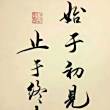 始于初見
止于终